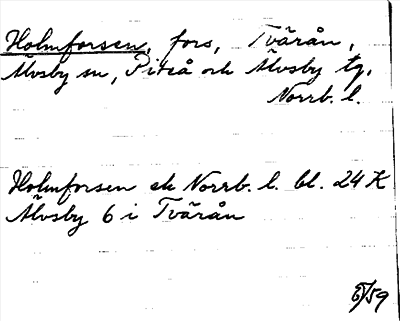 Holmforsen, fors, Tvärån,
Älvsby sn, Piteå och Älvsby tg.
Norrb. l.
Holmforsen ek Norrb. l. bl. 24 K
Älvsby 6 i Tvärån
/59